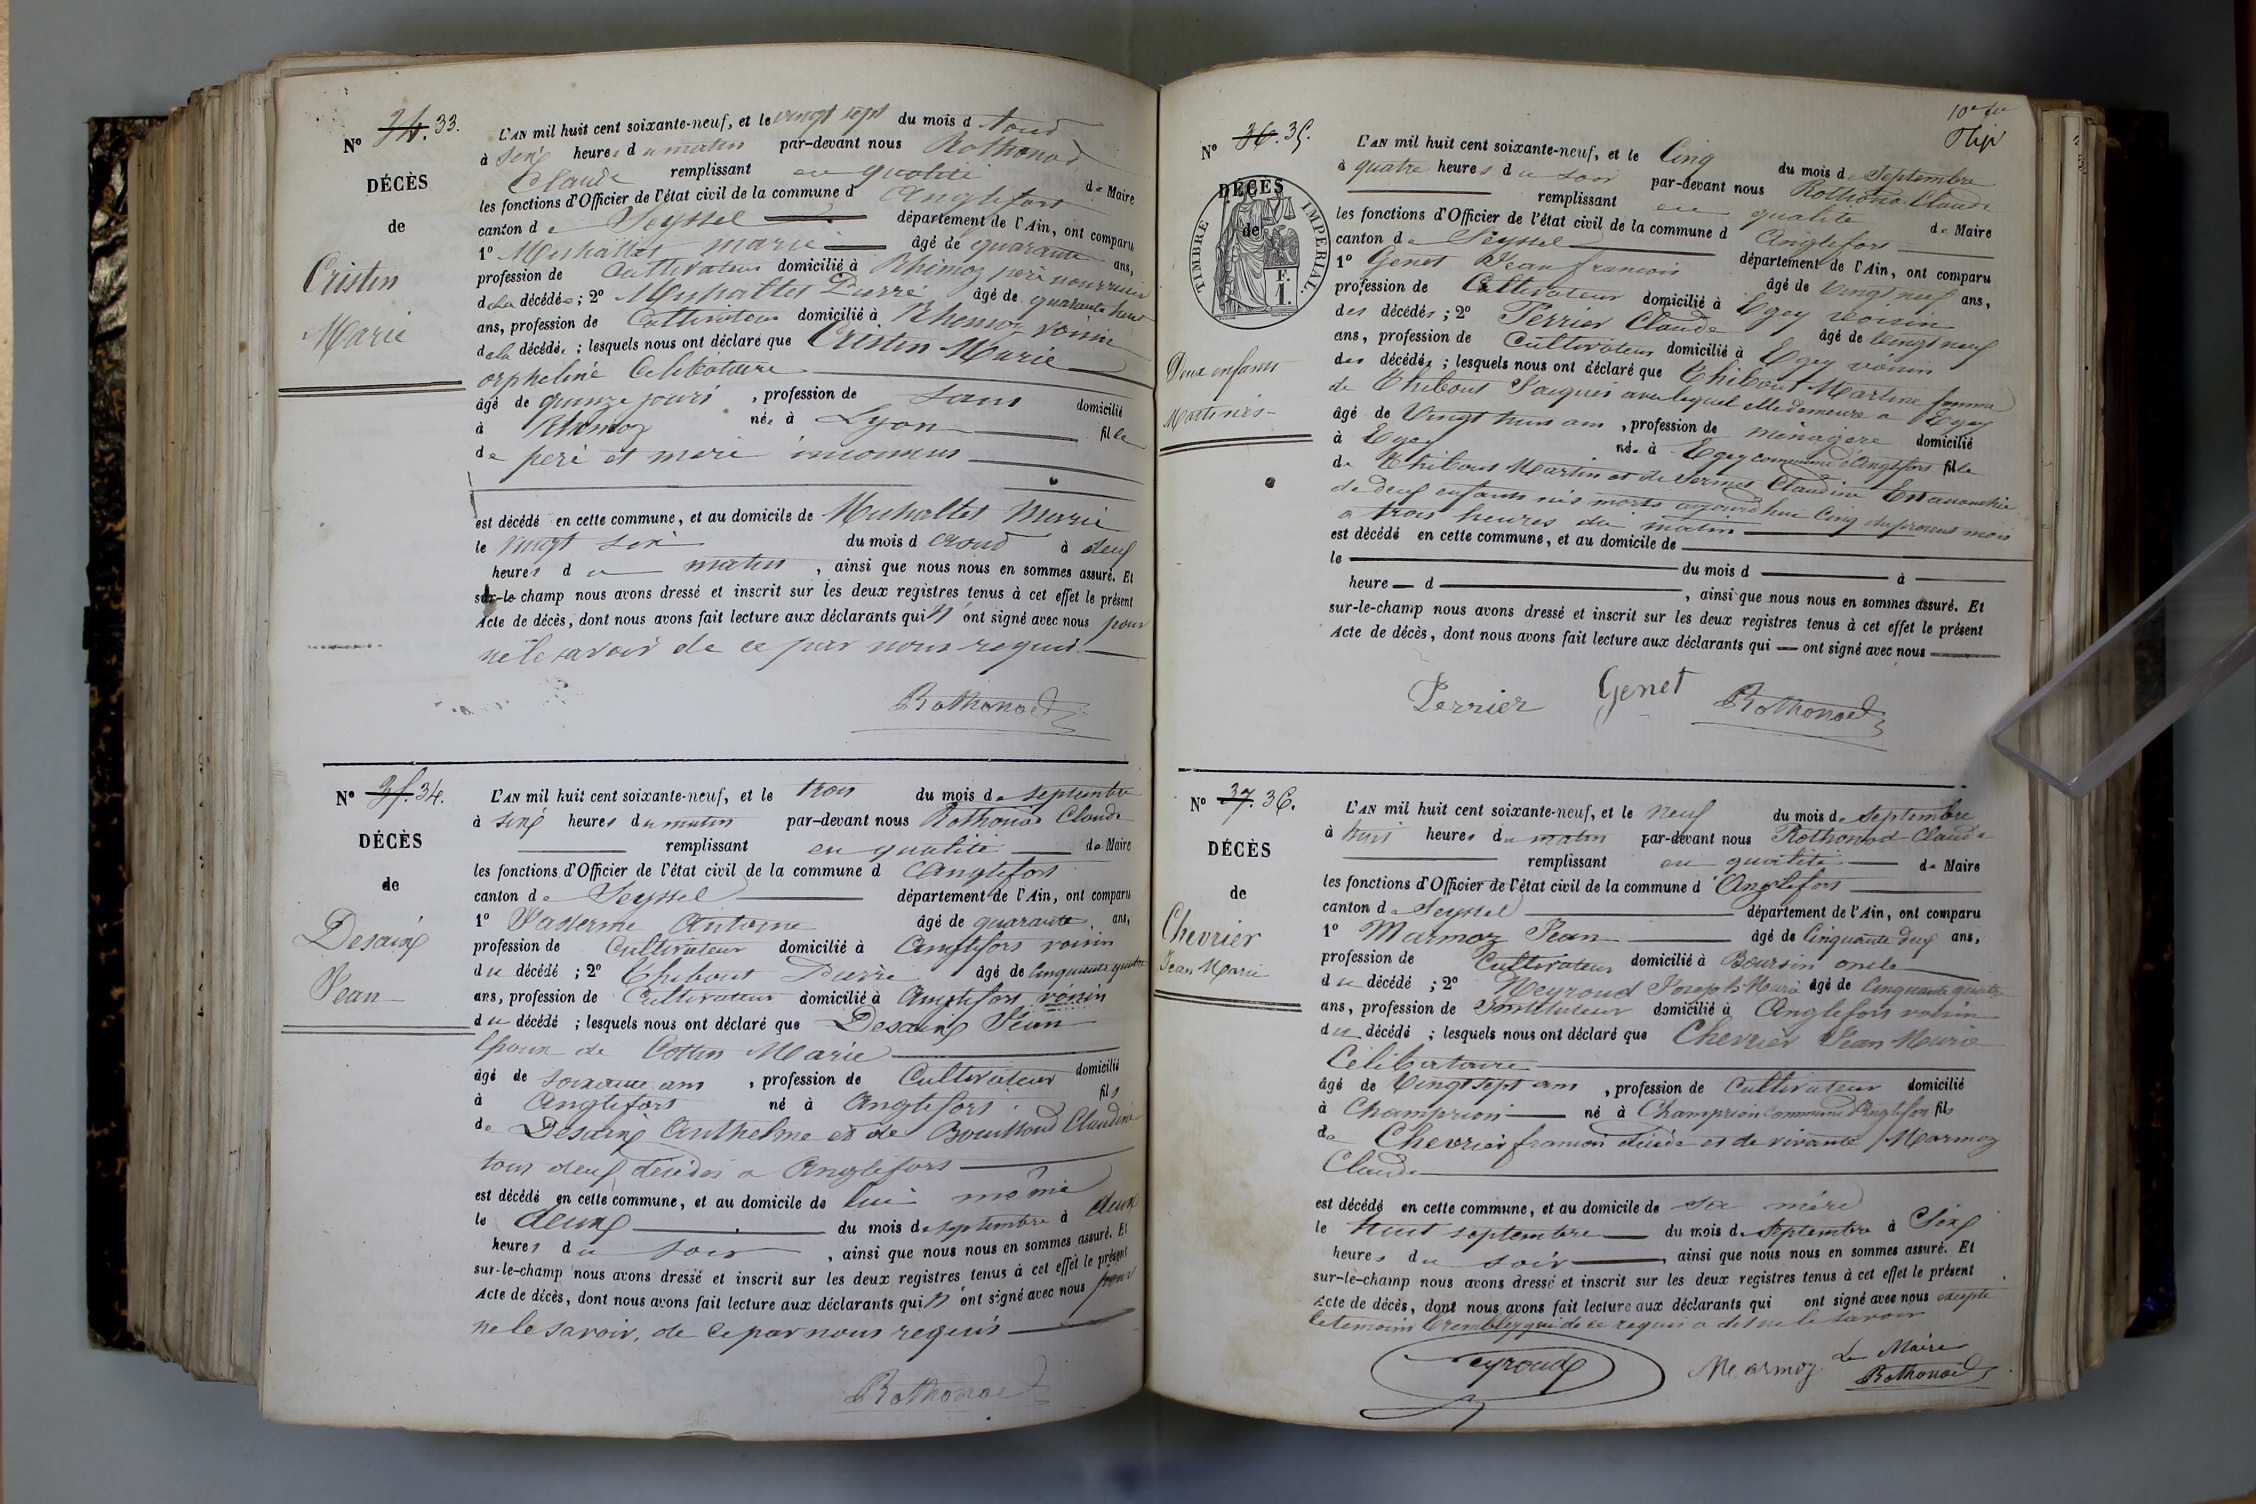 N° 34. 33.
DÉCÈS
de
Cristin
Marie
L'AN mil huit cent soixante-neuf, et le vingt sept du mois d'aoud
à six heures du matin par-devant nous Rothonod
Claude remplissant en qualité de Maire
les fonctions d'Officier de l'état civil de la commune d'Anglefort
canton de Seyssel département de l'Ain, ont comparu
1° Marie âgé de quarante ans,
profession de Cultivateur domicilié à Rhemoz père nourricier
de la décédée; 2° Pierre âgé de quarante huit
ans, profession de Cultivateur domicilié à Rhemoz voisin
de la décédée; lesquels nous ont déclaré que Cristin Marie
orpheline Célibataire
âgé de quinze jours, profession de Sans domicilié
à Rhemoz née à Lyon fille
de père et mère inconnus
est décédé en cette commune, et au domicile de Marie
le vingt six du mois d'aoud à deux
heures du matin, ainsi que nous nous en sommes assuré. Et
sur-le-champ nous avons dressé et inscrit sur les deux registres tenus à cet effet le présent
Acte de décès, dont nous avons fait lecture aux déclarants qui n'ont signé avec nous pour
ne le savoir de ce par nous requis
Rothonod
N° 35. 34.
DÉCÈS
de
Desaix
Jean
L'AN mil huit cent soixante-neuf, et le trois du mois de septembre
à six heures du matin par-devant nous Rothonod Claude
remplissant en qualité de Maire
les fonctions d'Officier de l'état civil de la commune d'Anglefort
canton de Seyssel département de l'Ain, ont comparu
1° Antoine âgé de quarante ans,
profession de Cultivateur domicilié à Anglefort voisin
du décédé; 2° Thibout Pierre âgé de cinquante quatre
ans, profession de Cultivateur domicilié à Anglefort voisin
du décédé; lesquels nous ont déclaré que Desaix Jean
époux de Cottin Marie
âgé de soixante ans, profession de Cultivateur domicilié
à Anglefort né à Anglefort fils
de Desaix Anthelme et de Bouilloud Claudine
tous deux décédés a Anglefort
est décédé en cette commune, et au domicile de lui même
le deux du mois de septembre à deux
heures du soir, ainsi que nous nous en sommes assuré. Et
sur-le-champ nous avons dressé et inscrit sur les deux registres tenus à cet effet le présent
Acte de décès, dont nous avons fait lecture aux déclarants qui n'ont signé avec nous pour
ne le savoir, de ce par nous requis
Rothonod
N° 36. 35.
DÉCÈS
de
TIMBRE IMPÉRIAL
F.
1.
Deux enfants
10e
L'AN mil huit cent soixante-neuf, et le Cinq du mois de Septembre
à quatre heures du soir par-devant nous Rothonod Claude
remplissant en qualité de Maire
les fonctions d'Officier de l'état civil de la commune d'Anglefort
canton de Seyssel département de l'Ain, ont comparu
1° Genet Jean françois âgé de vingt neuf ans,
profession de Cultivateur domicilié à Egey voisin
des décédés; 2° Perrier Claude âgé de vingt neuf
ans, profession de Cultivateur domicilié à Egey voisin
des décédés; lesquels nous ont déclaré que Thibout Martine femme
de Thibout Jacques avec lequel elle demeure a Egey
âgé de Vingt huit ans, profession de ménagère domicilié
à Egey née à Egey commune d'Anglefort fille
de Thibout Martin et de Claudine Est accouchée
de deux enfants nés morts aujourd'hui Cinq du présent mois
a trois heures du matin
est décédé en cette commune, et au domicile de
le du mois d à
heure d, ainsi que nous nous en sommes assuré. Et
sur-le-champ nous avons dressé et inscrit sur les deux registres tenus à cet effet le présent
Acte de décès, dont nous avons fait lecture aux déclarants qui ont signé avec nous
Perrier Genet Rothonod
N° 37. 36.
DÉCÈS
de
Chevrier
Jean Marie
L'AN mil huit cent soixante-neuf, et le neuf du mois de Septembre
à huit heures du matin par-devant nous Rothonod Claude
remplissant en qualité de Maire
les fonctions d'Officier de l'état civil de la commune d'Anglefort
canton de Seyssel département de l'Ain, ont comparu
1° Marmoz Jean âgé de Cinquante deux ans,
profession de Cultivateur domicilié à Boursin oncle
du décédé; 2° Neyroud Joseph Marie âgé de cinquante quatre
ans, profession de instituteur domicilié à Anglefort voisin
du décédé; lesquels nous ont déclaré que Chevrier Jean Marie
Célibataire
âgé de Vingt sept ans, profession de Cultivateur domicilié
à Champrion né à Champrion commune d'Anglefort fils
de Chevrier françois décédé et de vivante Marmoz
Claude
est décédé en cette commune, et au domicile de sa mère
le huit septembre du mois de Septembre à Six
heures du soir, ainsi que nous nous en sommes assuré. Et
sur-le-champ nous avons dressé et inscrit sur les deux registres tenus à cet effet le présent
Acte de décès, dont nous avons fait lecture aux déclarants qui ont signé avec nous excepté
le témoin qui de ce requis a dit ne le savoir
Neyroud Marmoz Le Maire
Rothonod